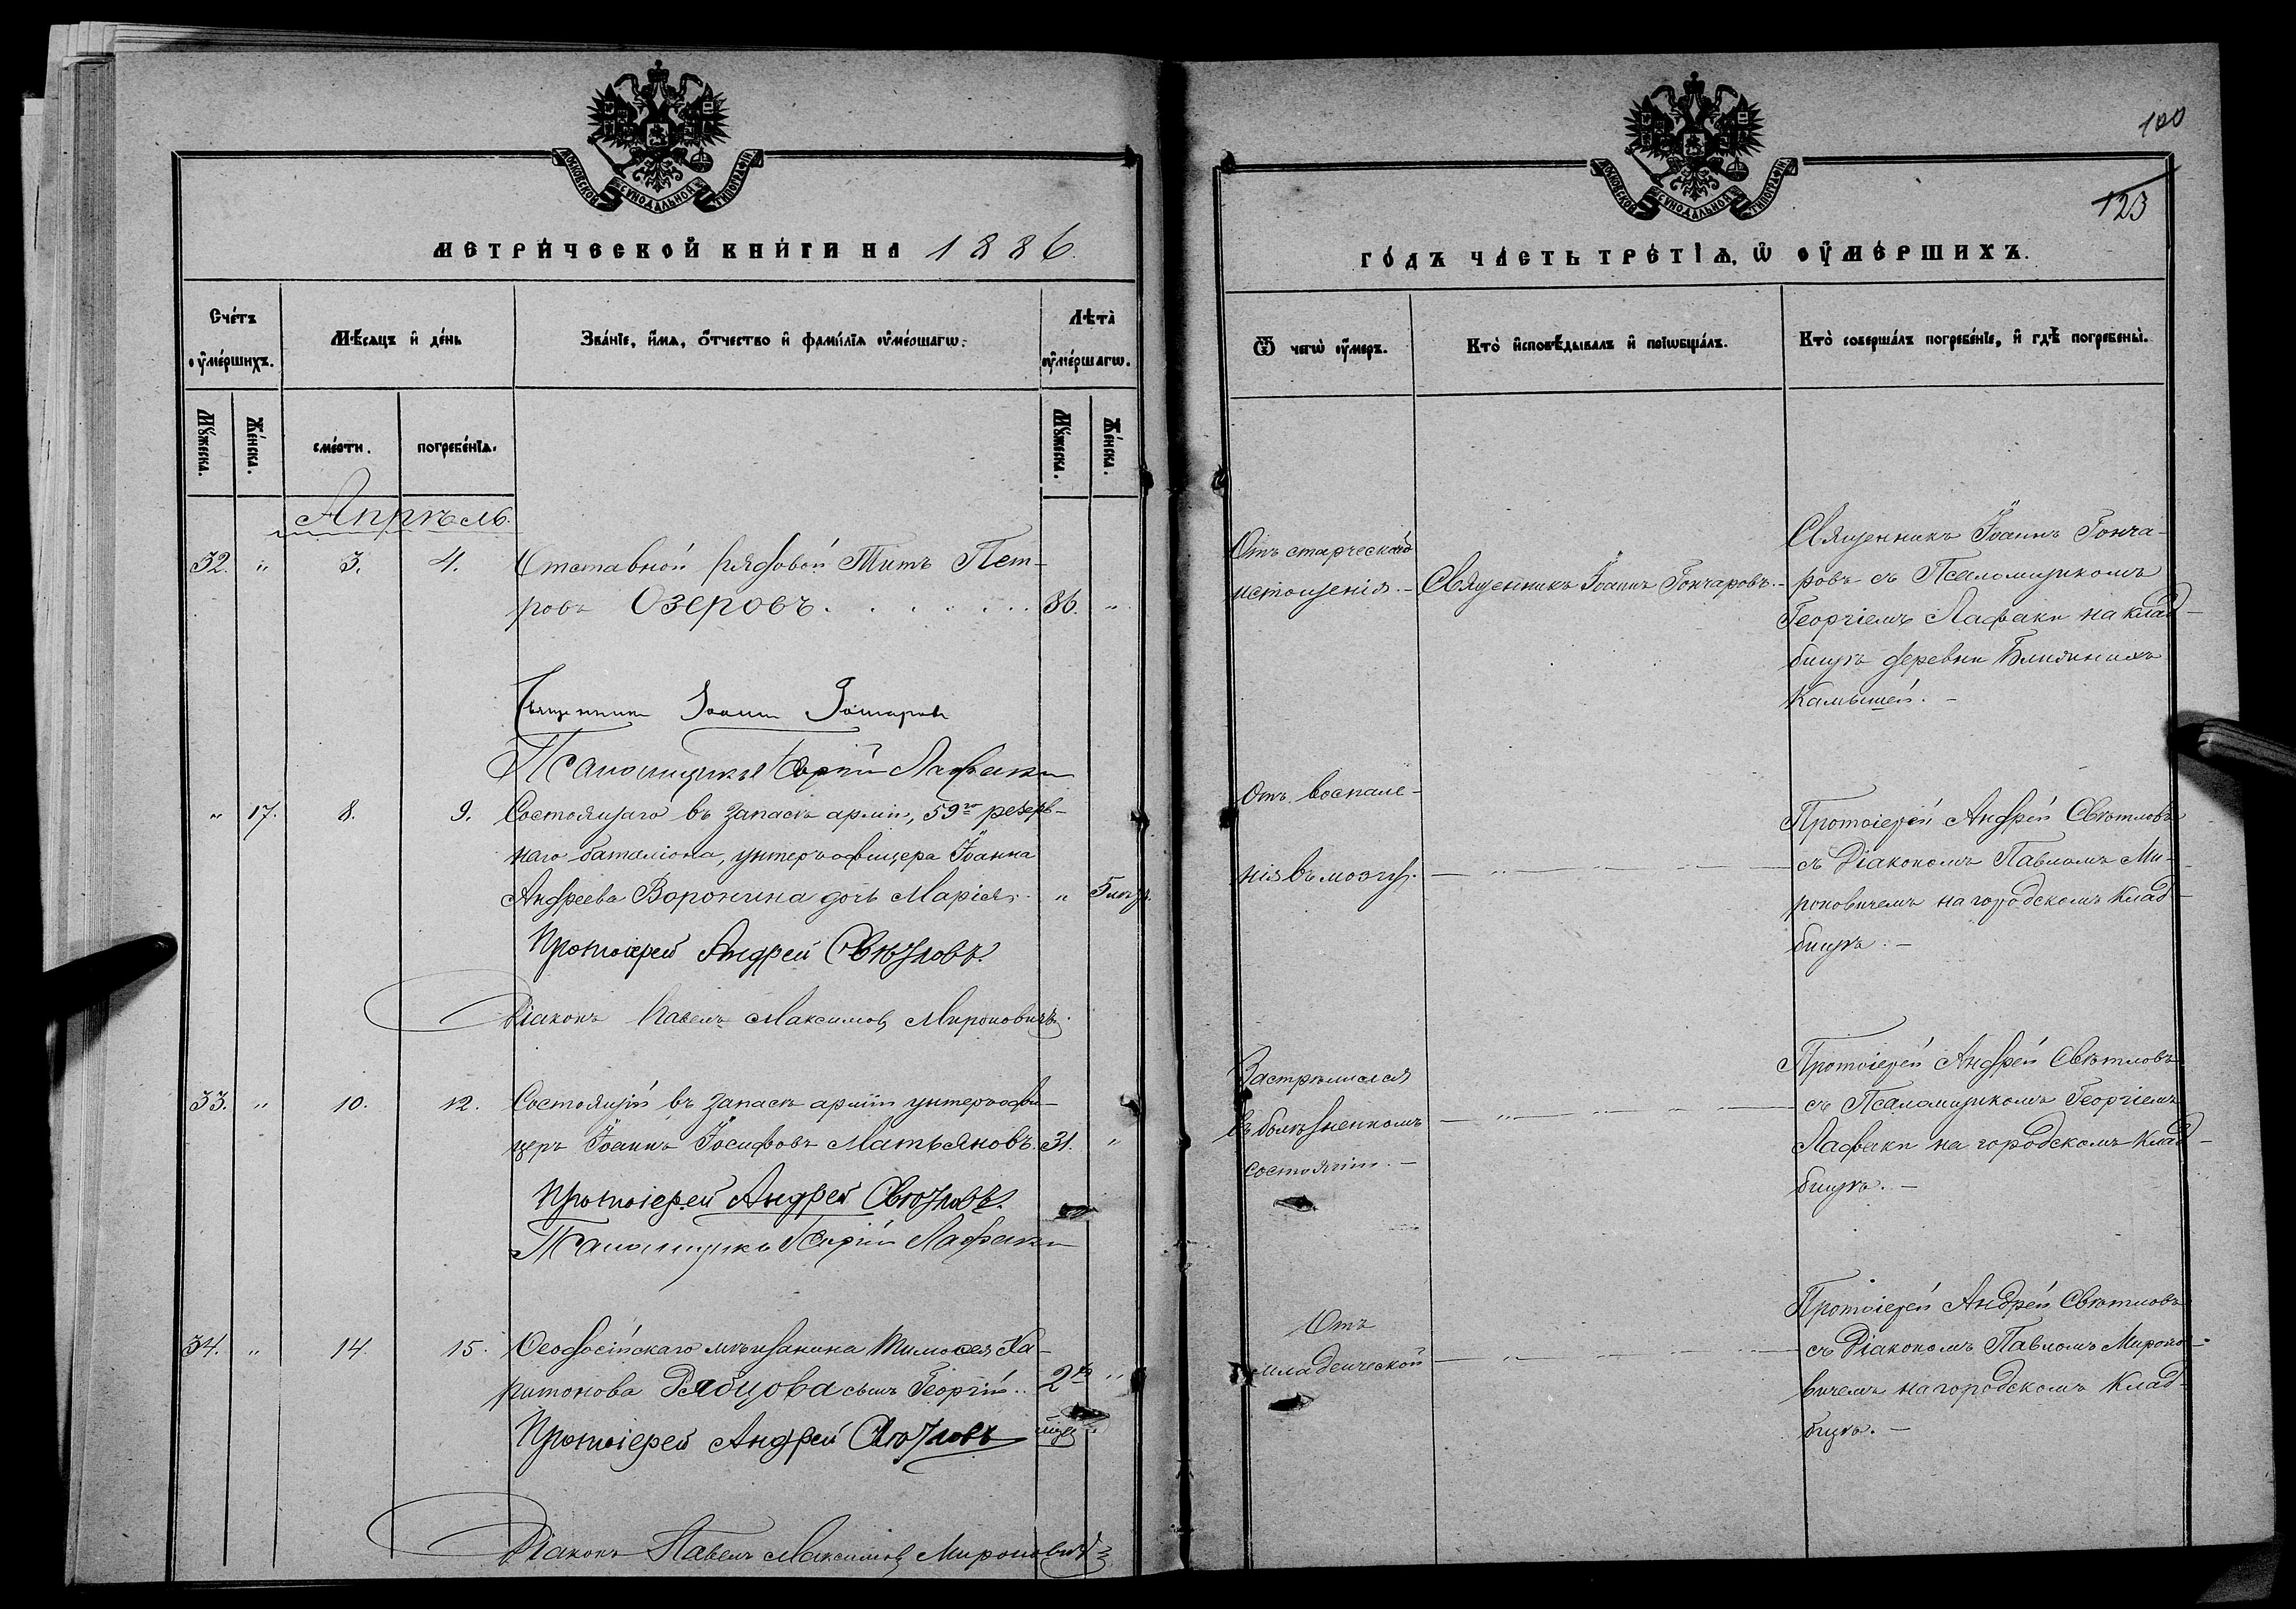 МОСКОВСКОЙ СѴНОДАЛЬНОЙ ТИПОГРАФІИ
МЕТРИ́ЧЕСКОЙ КНИ́ГИ НА 1886.
Сче́тъ оу҆ме́ршихъ.
Мѣ́сяцъ и҆ де́нь
Зва́нїе, и҆́мя, ѻ҆́тчество и҆ фами́лїя оу҆ме́ршагѡ.
Лѣ́та оу҆ме́ршагѡ.
Му́жеска.
Же́нска.
сме́рти.
погребе́нїя.
Му́жеска.
Же́нска.
Апрѣль.
32. „ 3. 4. Отставной рядовой Титъ Пет-
ровъ Озеровъ. 86. „
Священникъ Іоаннъ Гончаровъ
Псаломщикъ Георгій Лафаки
„ 17. 8. 9. Состоящаго въ запасѣ арміи, 59го резерв-
наго баталіона, унтеръ-офицера Іоанна
Андреева Воронина дочь Марія. „ 5 мѣц.
Протоіерей Андрей Свѣтловъ.
Діаконъ Павелъ Максимовъ Мироновичъ.
33. „ 10. 12. Состоящій въ запасѣ арміи унтеръ-офи-
церъ Іоаннъ Іосифовъ Матьяновъ. 31. „
Протоіерей Андрей Свѣтловъ.
Псаломщикъ Георгій Лафаки
34. „ 14. 15. Ѳеодосійскаго мѣщанина Тимоѳея Ха-
ритонова Рябцова сынъ Георгій. 2 „
Протоіерей Андрей Свѣтловъ
Діаконъ Павелъ Максимовъ Мироновичъ
100
МОСКОВСКОЙ СѴНОДАЛЬНОЙ ТИПОГРАФІИ
123
ГО́ДЪ ЧА́СТЬ ТРЕ́ТІЯ, Ѡ҆ ОУ҆МЕ́РШИХЪ.
Ѿ чегѡ̀ оу҆́меръ.
Кто̀ и҆сповѣ́дывалъ и҆ прїѡбща́лъ.
Кто̀ соверша́лъ погребе́нїе, и҆ гдѣ̀ погребены̀.
Отъ старческаго
истощенія. –
Священникъ Іоаннъ Гончаровъ. –
Священникъ Іоаннъ Гонча-
ровъ съ Псаломщикомъ
Георгіемъ Лафаки на клад-
бищѣ деревни Ближнихъ
Камышей. –
Отъ воспале-
нія въ мозгу. — „ —
Протоіерей Андрей Свѣтловъ
съ Діакономъ Павломъ Ми-
роновичемъ на городскомъ клад-
бищѣ. –
Застрѣлился
въ болѣзненномъ — „ —
состояніи. –
Протоіерей Андрей Свѣтловъ
съ Псаломщикомъ Георгіемъ
Лафаки на городскомъ клад-
бищѣ. –
Отъ
младенческой — „ —
Протоіерей Андрей Свѣтловъ
съ Діакономъ Павломъ Мироно-
вичемъ на городскомъ клад-
бищѣ. –